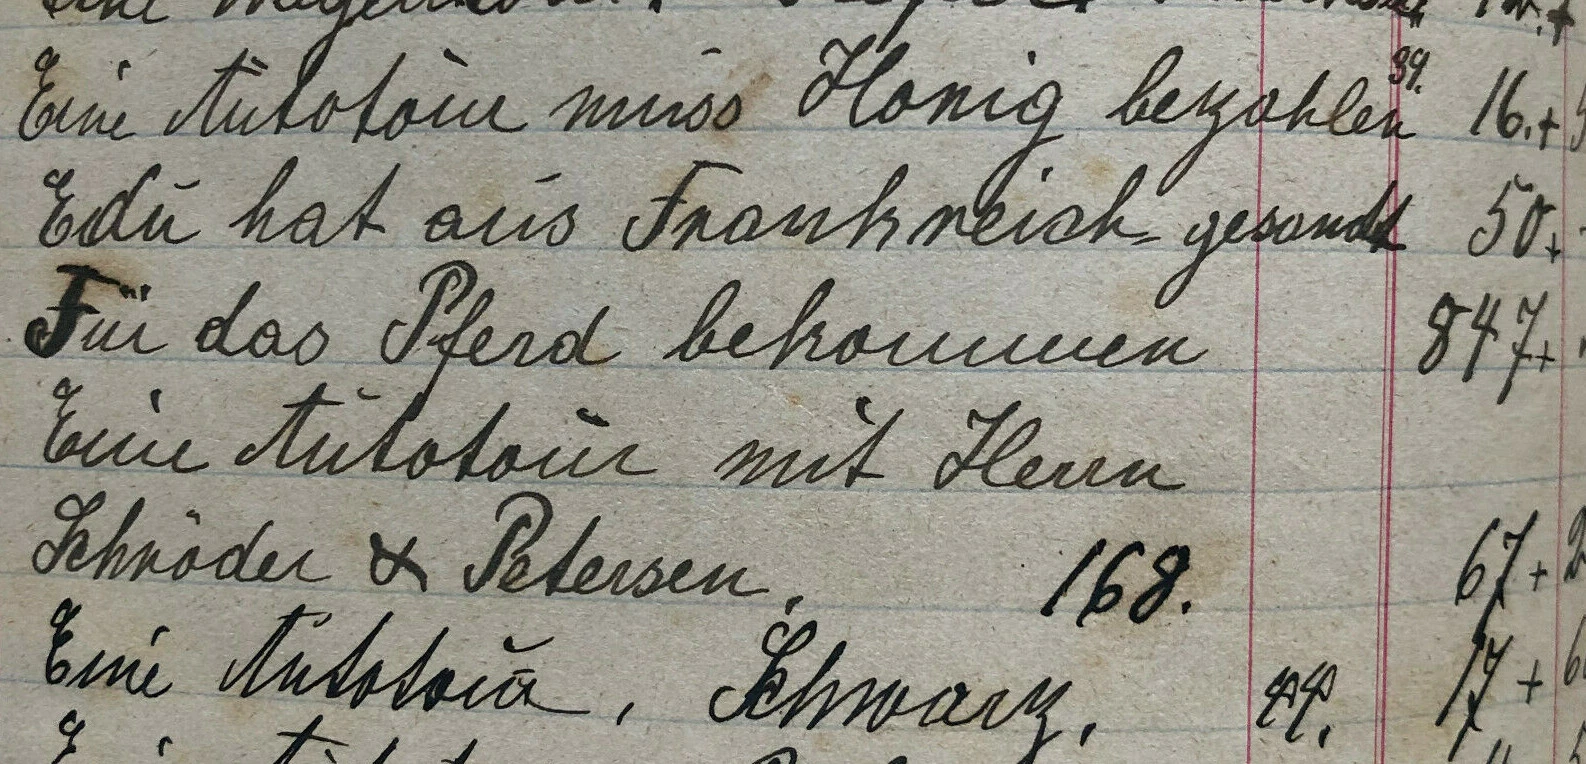 Eine
Eine Autotour muss Honig bezahlen 39. 16.+
Edu hat aus Frankreich gesandt 50.+
Für das Pferd bekommen 847+
Eine Autotour mit Herrn
Schröder & Petersen, 168. 67+
Eine Autotour, Schwarz, 44. 17+